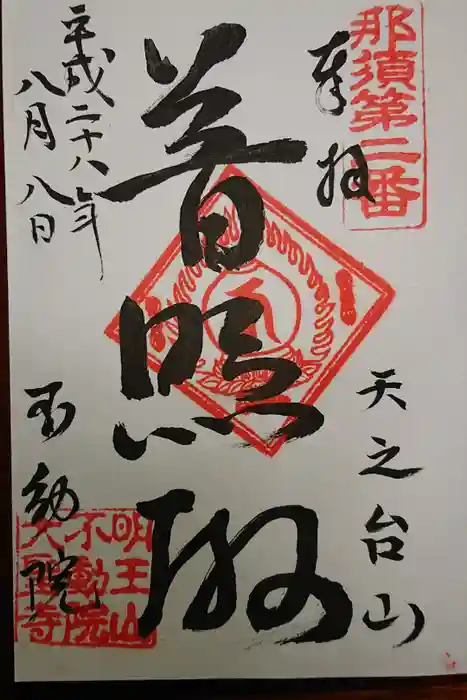 那須第二番
奉拝
天之台山
普照殿
平成二十八年
八月八日
不動院
明王山
不動院